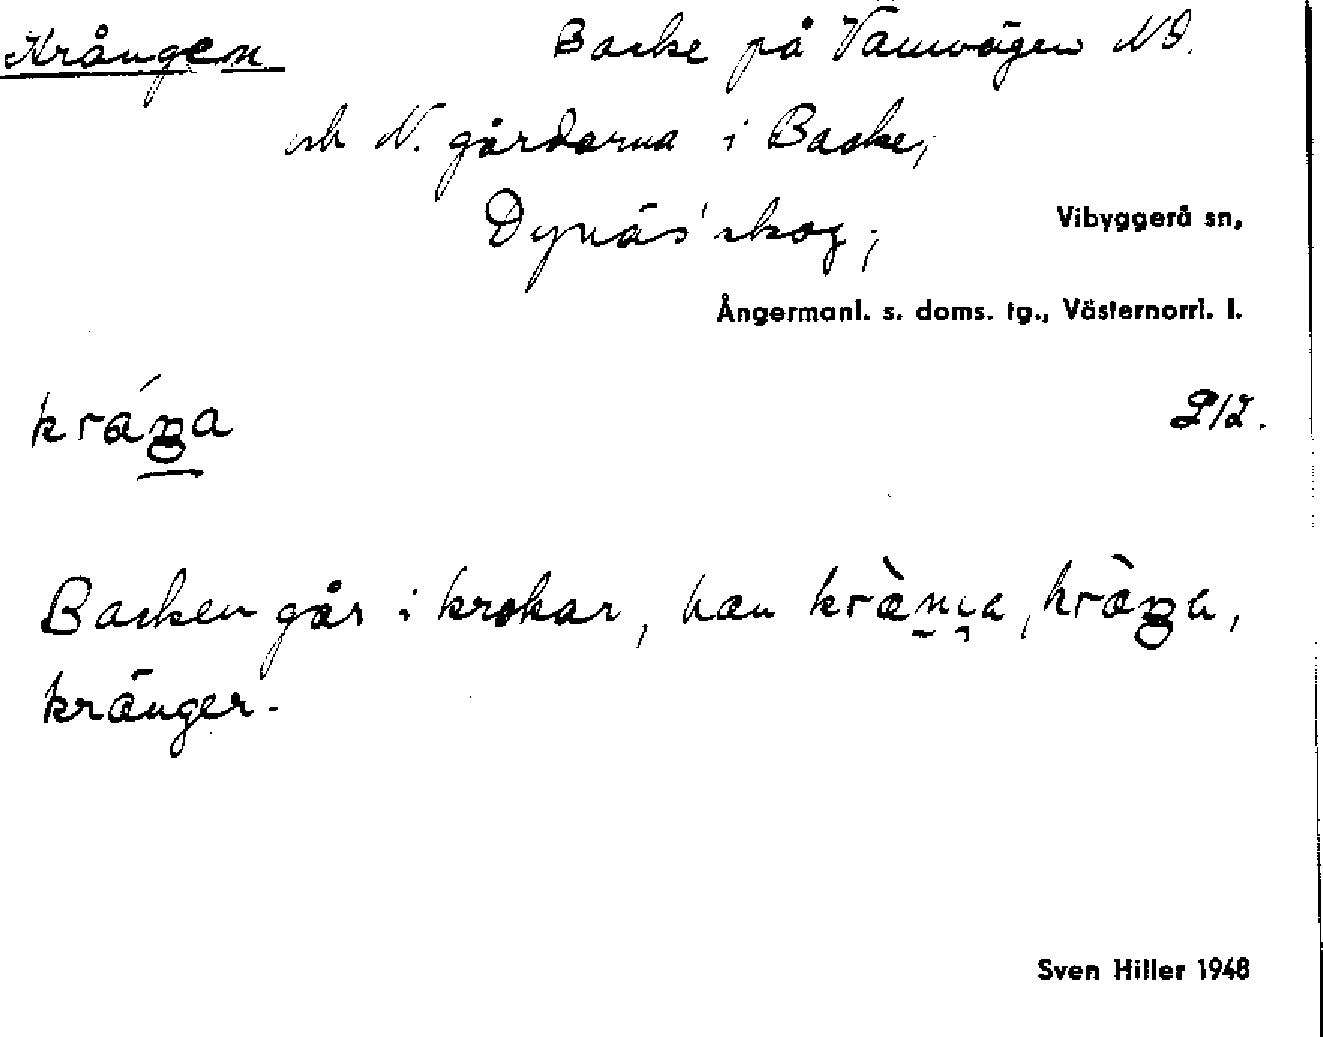 Krången Backe på Vämvägen NO.
och N. gårdarna i Backe,
Dynäs' skog; Vibyggerå sn,
Ångermanl. s. doms. tg., Västernorrl. l.
212.
Backen går i krokar, han
kränger.
Sven Hiller 1948